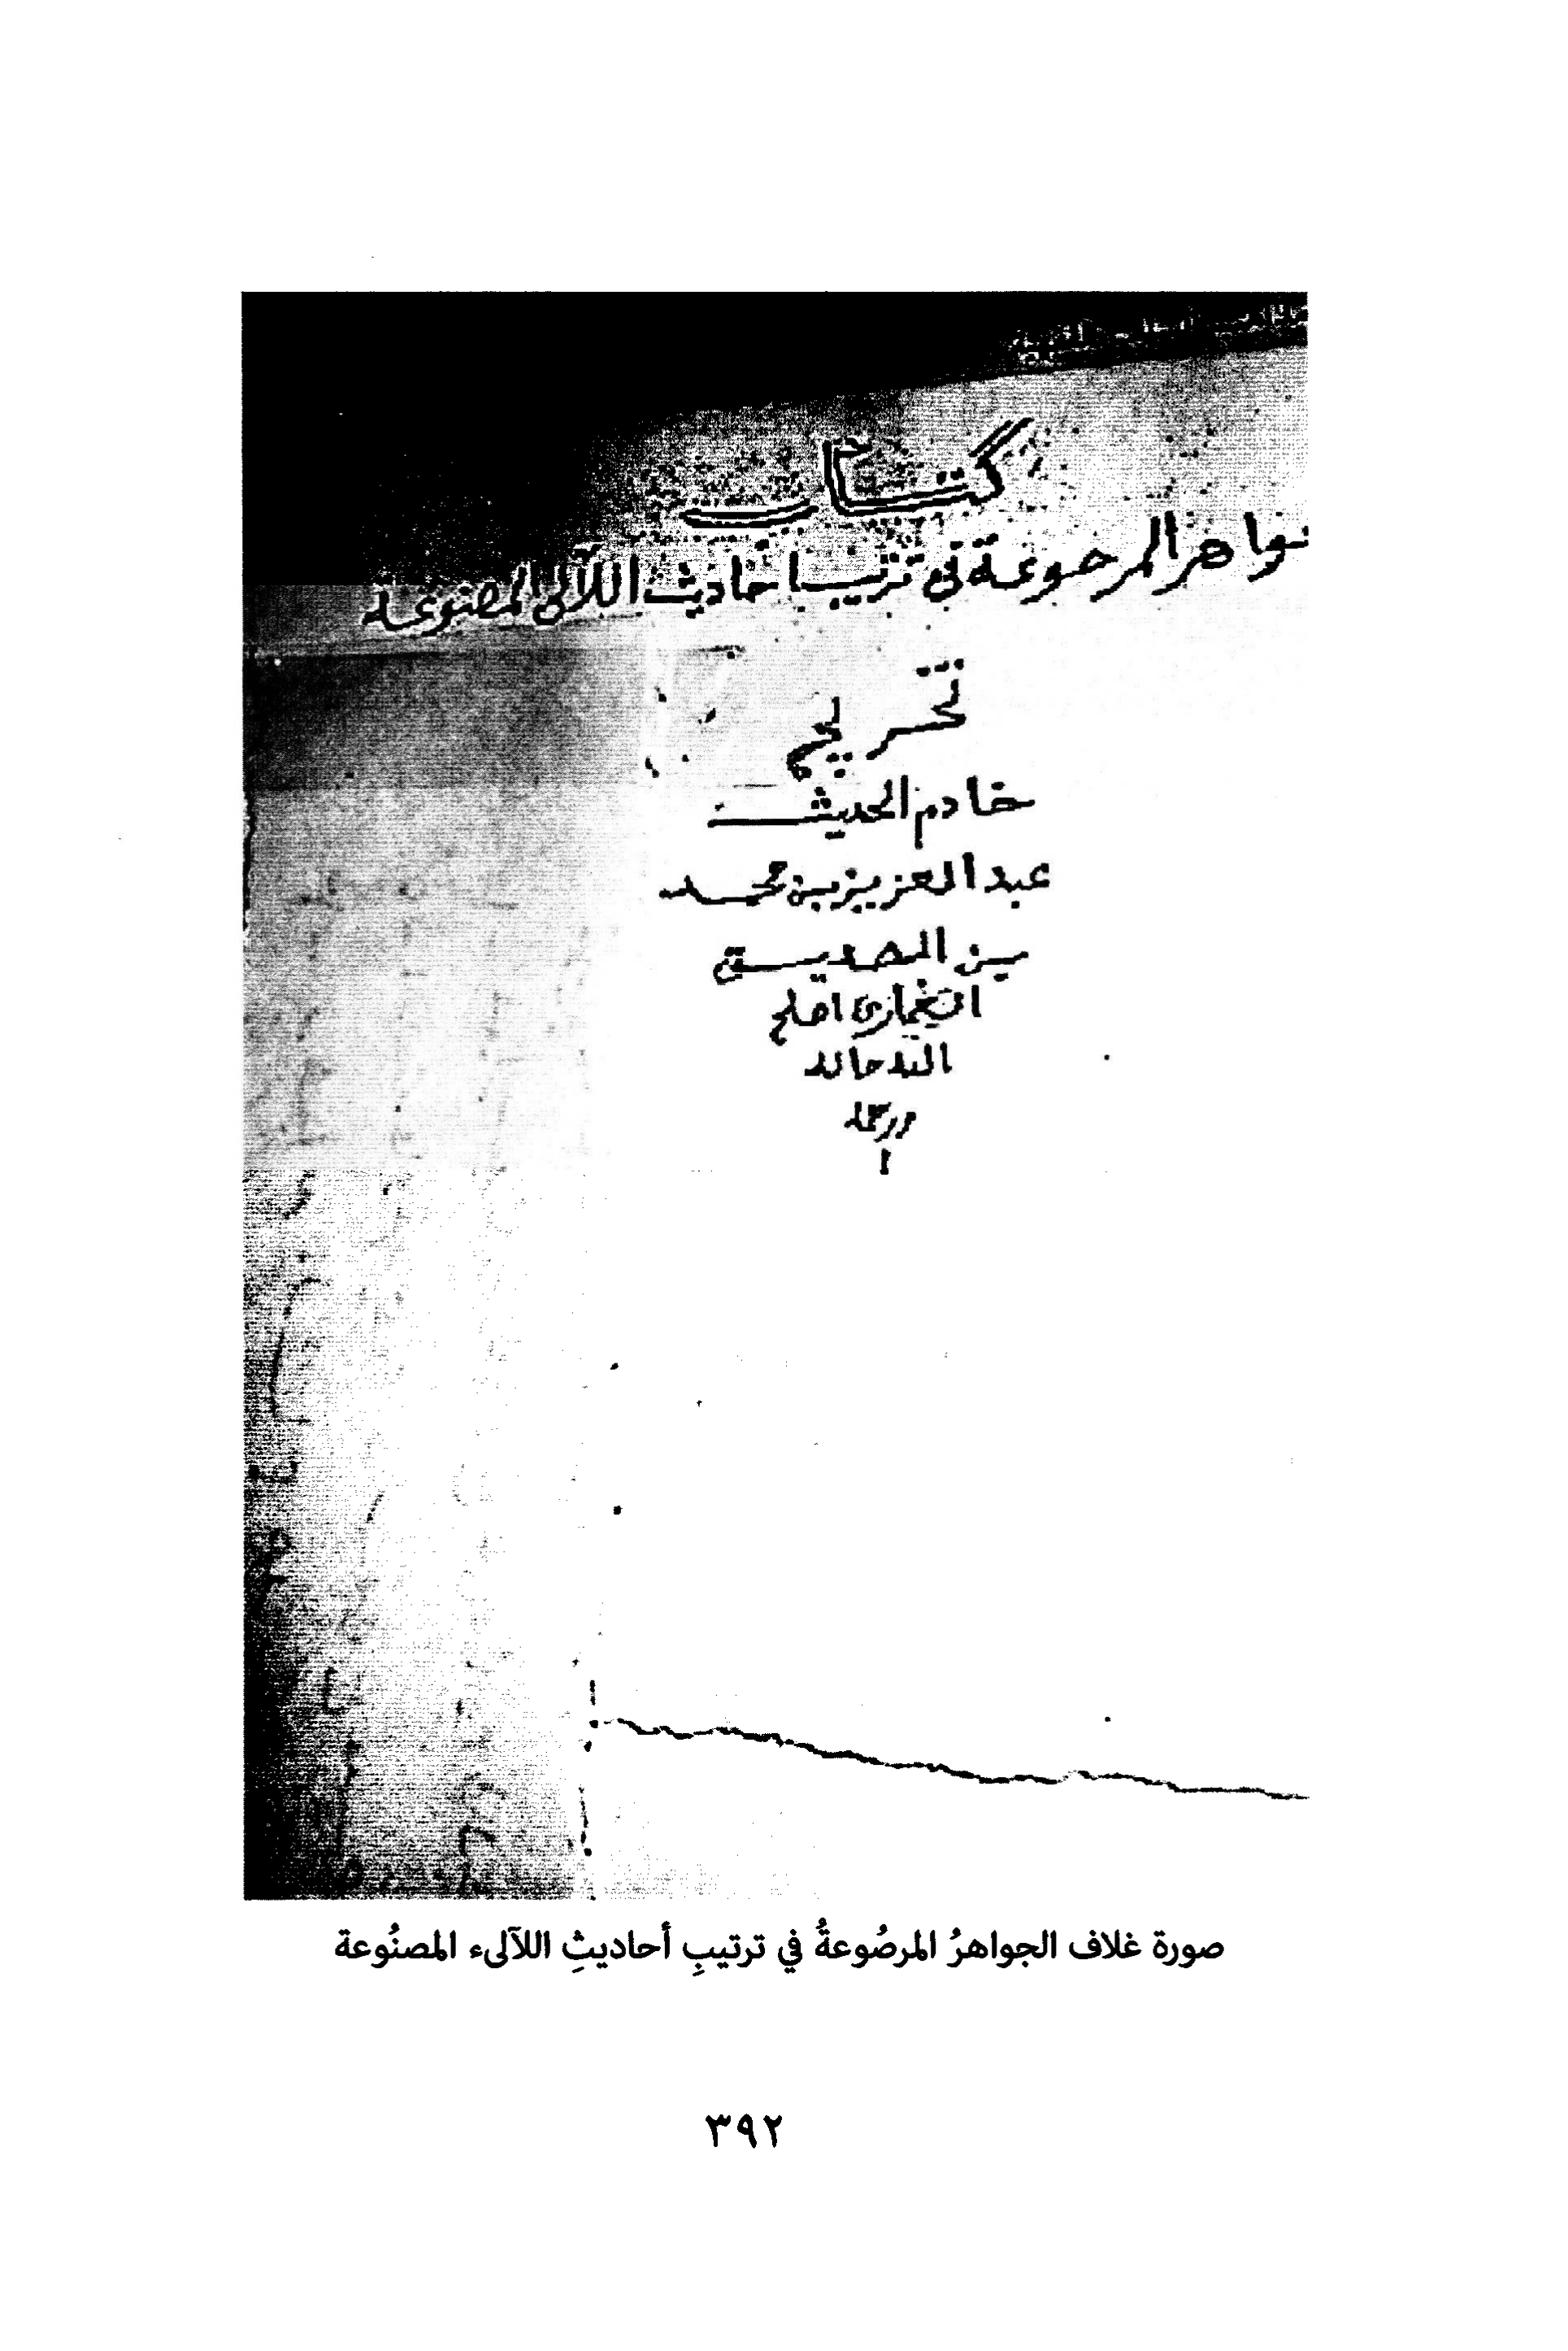 كتاب
جواهر المرصوعة في ترتيب احاديث اللآلي المصنوعة
تخريج
خادم الحديث
عبد العزيز بن محمد
بن الصديق
الغماري اصلح
الله حاله
ورحمه
ا
صورة غلاف الجواهرُ المرصُوعةُ في ترتيبِ أحاديثِ اللآلىء المصنُوعة
٣٩٢